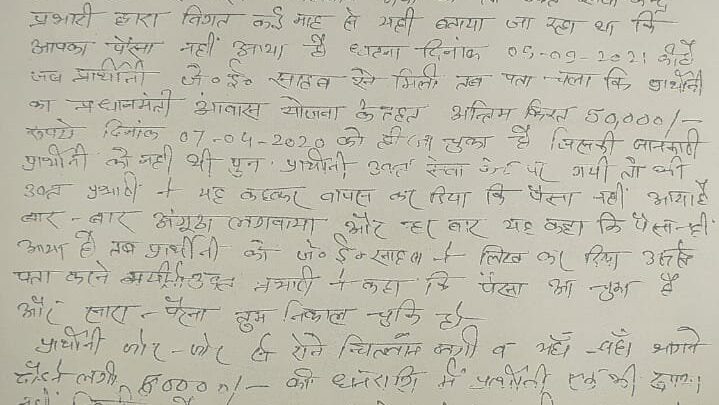 प्रभारी द्वारा विगत कई माह से यही बताया जा रहा था कि
आपका पैसा नहीं आया है घटना दिनांक 05-09-2021 की है
जब प्रार्थीनी जे०ई० साहब से मिली तब पता चला कि प्रार्थीनी
का प्रधानमंत्री आवास योजना के तहत अन्तिम किस्त 50,000/-
रूपये दिनांक 07-04-2020 को ही आ चुका है जिसकी जानकारी
प्रार्थीनी को नही थी पुनः प्रार्थीनी उक्त सेवा केन्द्र पर गयी तो भी
उक्त प्रभारी ने यह कहकर वापस कर दिया कि पैसा नहीं आया है
बार-बार अंगूठा लगवाया और हर बार यह कहा कि पैसा नहीं
आया है तब प्रार्थीनी को जे०ई० साहब ने लिख कर दिया
पता करने उक्त प्रभारी ने कहा कि पैसा आ चुका है
और सारा-पैसा तुम निकाल चुकि हो
प्रार्थीनी जोर-जोर से रोने चिल्लाने लगी व यहाँ-वहाँ भागने
दौड़ने लगी, 50000/- की धनराशि में प्रार्थीनी एक भी रूपया